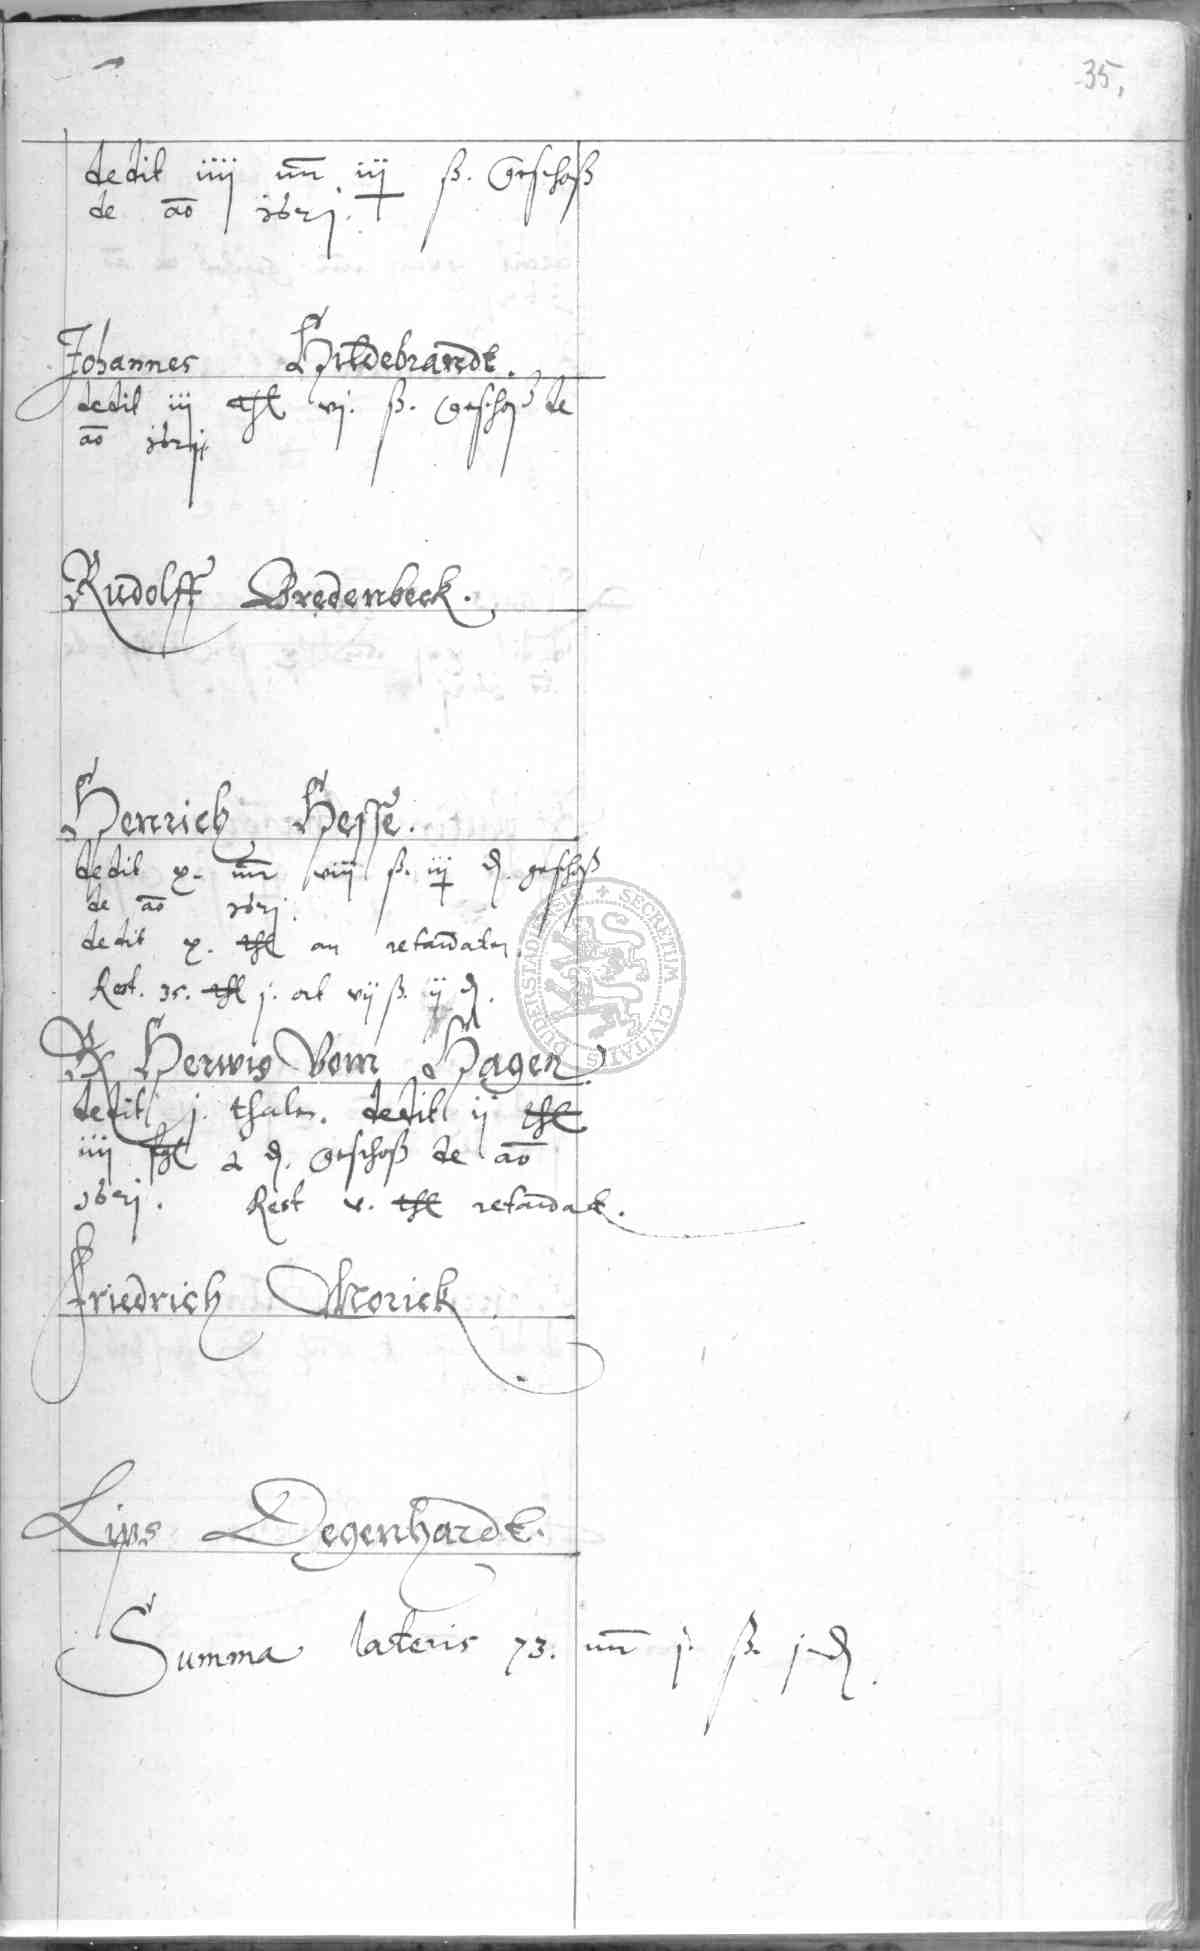 35,
dedit iiij mr iij ß. Geschoß
de ao 1621.
Johannes Hildebrandt.
dedit iij thl vj. ß. Geschoß de
ao 1621
Rudolff Bredenbeck.
Henrich Hesse.
dedit x. mr viij ß. iij ₰. geschoß
de ao 1621.
dedit x. thl an retardaten.
Rest. 35. thl j. ort vij ß. ij ₰.
Herwig Vom Hagen.
dedit j. thaler. dedit ij thl
iiij ₰. Geschoß de ao
1621. Rest v. thl retardat.
Friedrich Morick
Lips Degenhardt.
Summa lateris 73. mr j. ß. j ₰.
SECRETUM CIVITATIS DUDERSTADIENSIS